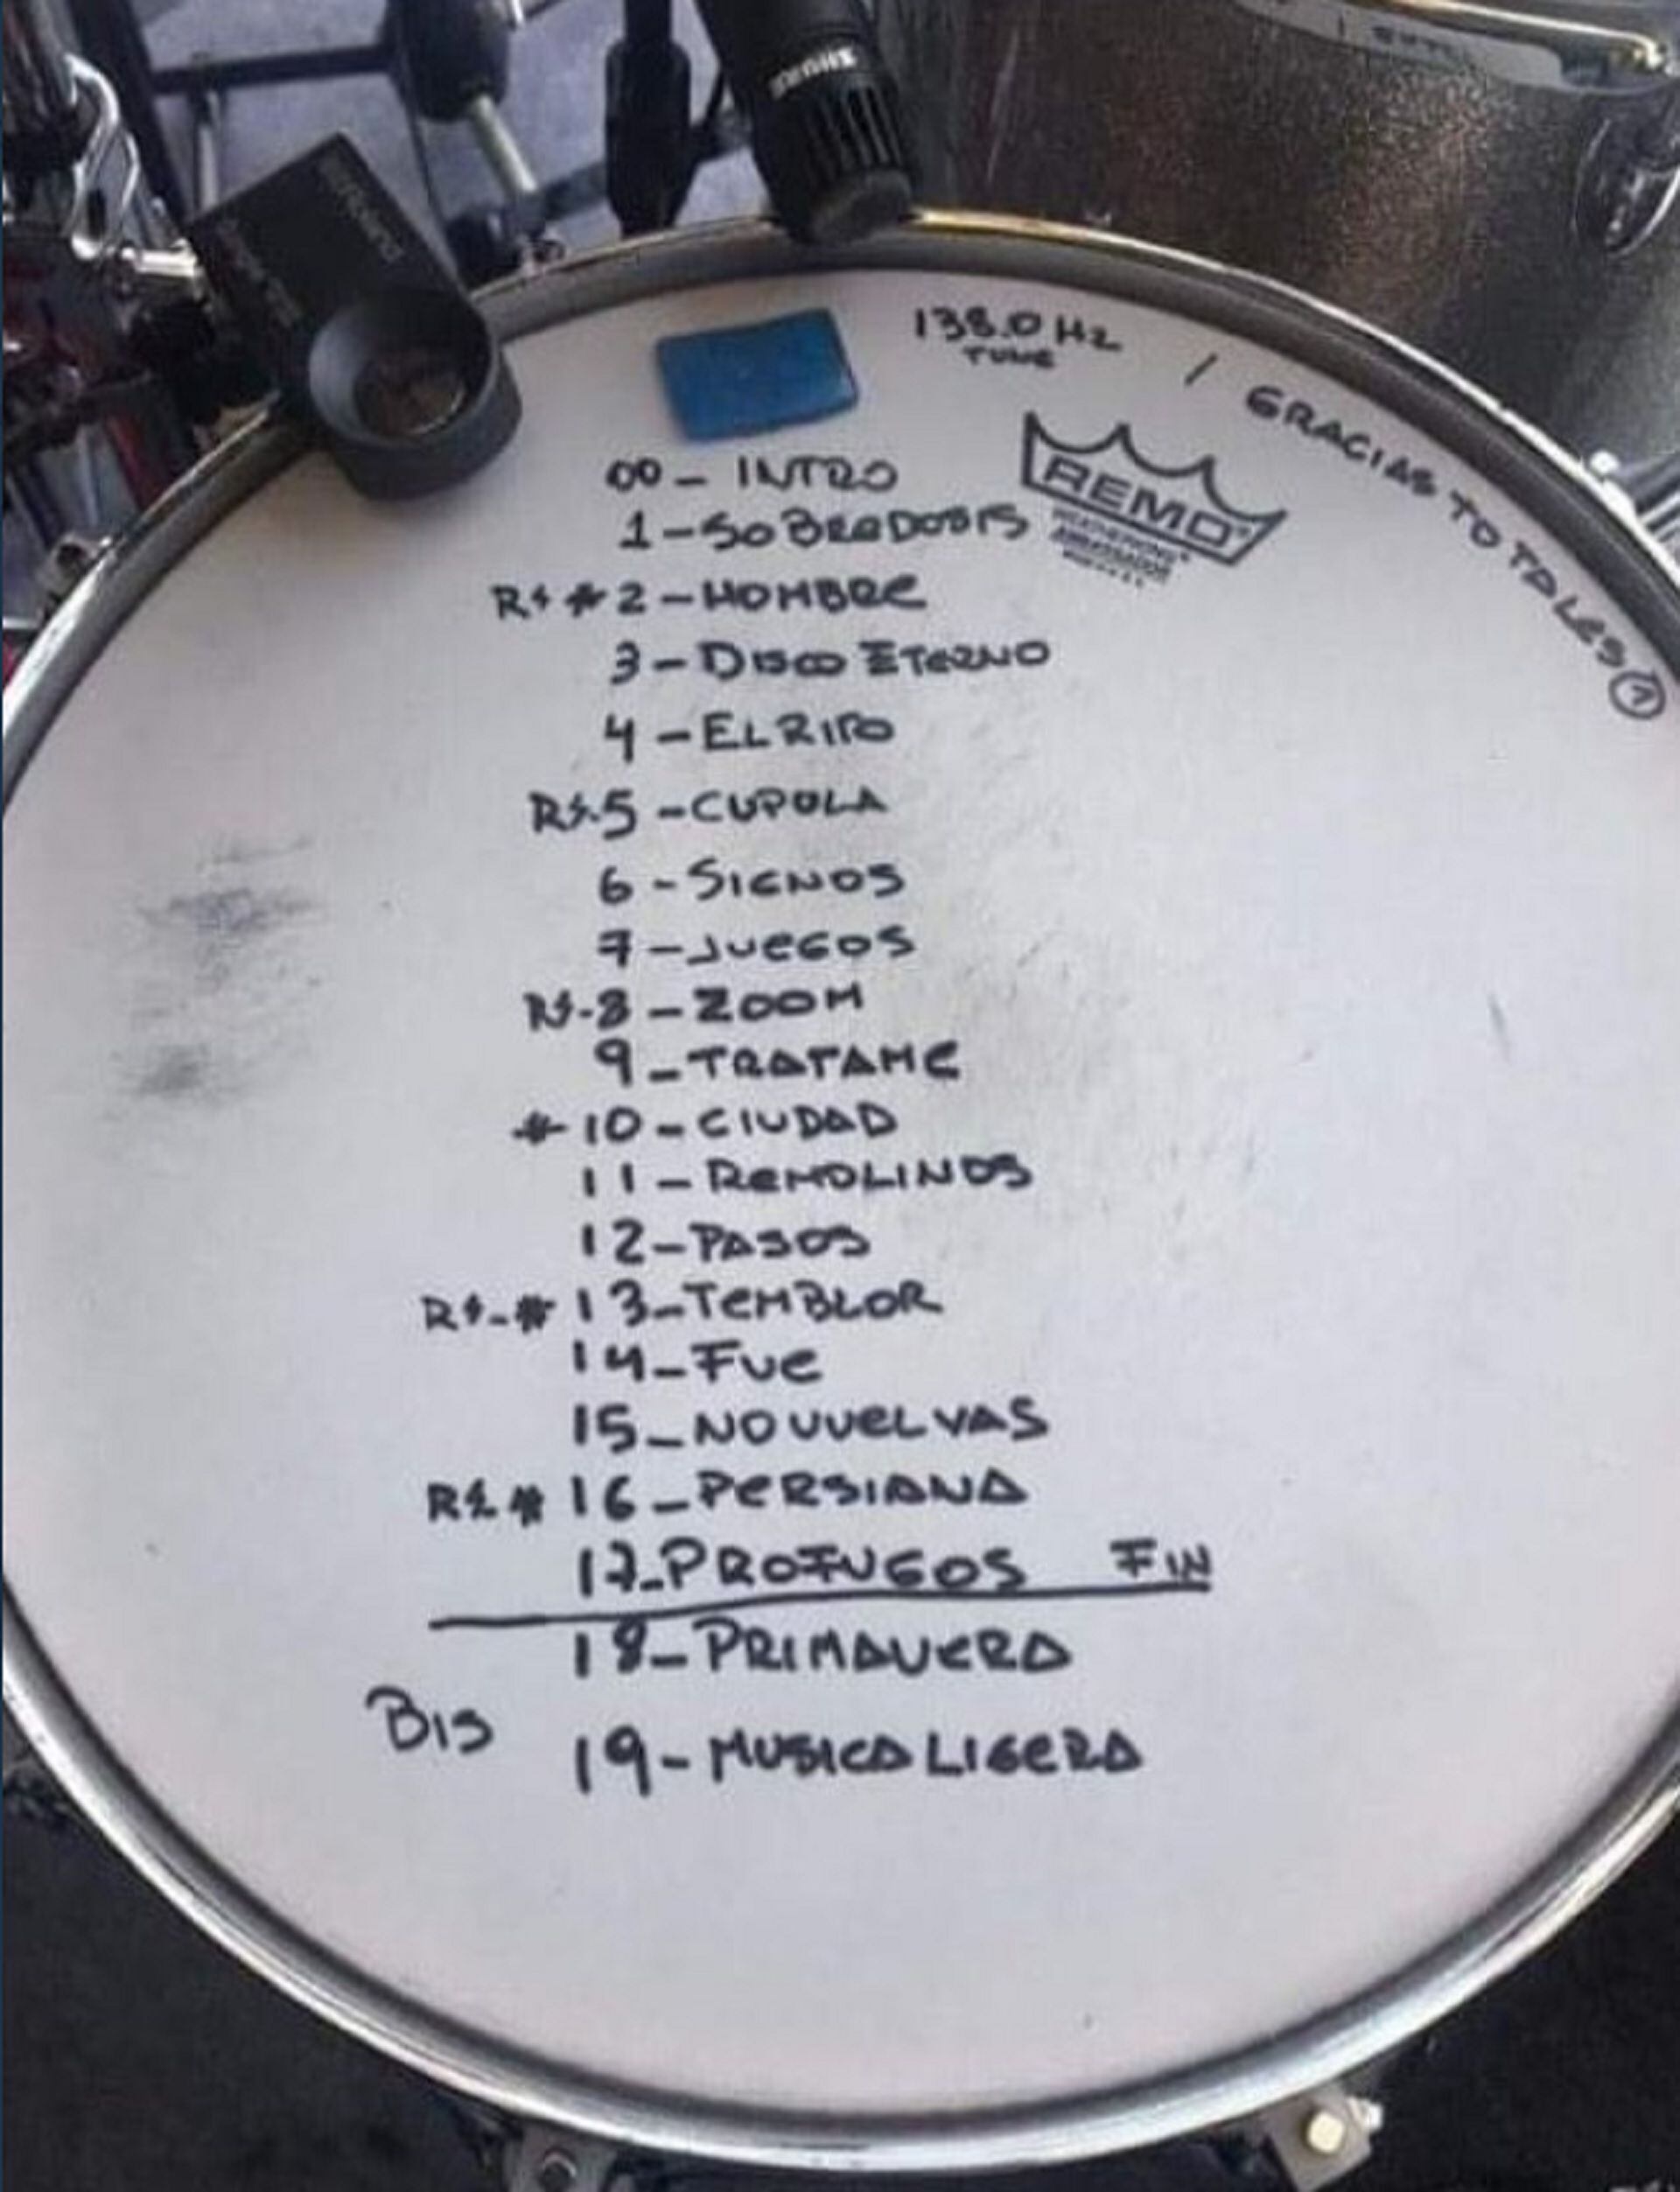 SHURE
138.0 Hz
TUNE
/ GRACIAS TOTALES
REMO
WEATHERKING
AMBASSADOR
00 - INTRO
1 - SOBREDOSIS
R# 2 - HOMBRE
3 - DISCO ETERNO
4 - EL RITO
5 - CUPULA
6 - SIGNOS
7 - JUEGOS
8 - ZOOM
9 - TRATAME
# 10 - CIUDAD
11 - REMOLINOS
12 - PASOS
# 13 - TEMBLOR
14 - FUE
15 - NO VUELVAS
# 16 - PERSIANA
17 - PROFUGOS FIN
18 - PRIMAVERA
BIS
19 - MUSICA LIGERA